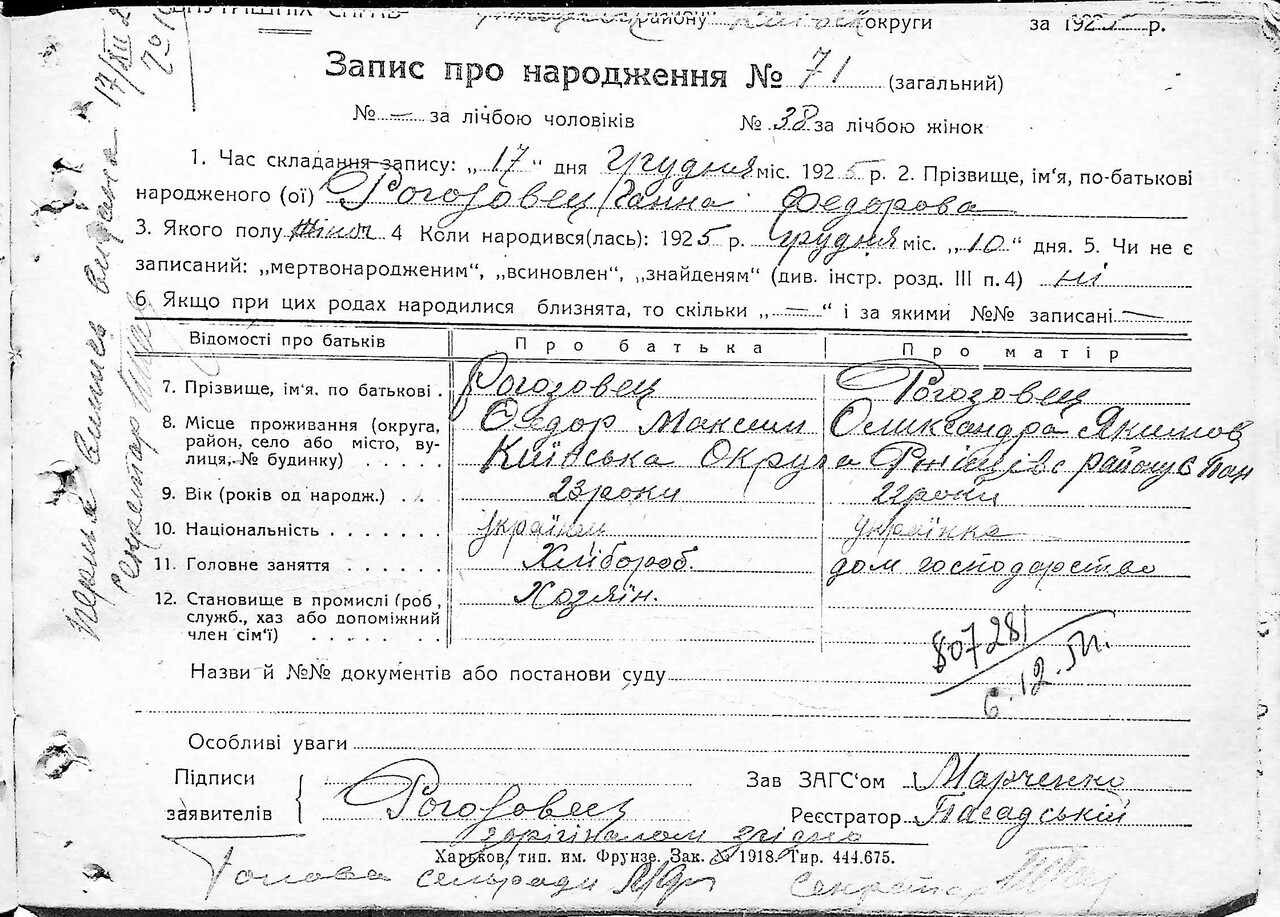 ВНУТРІШНІХ СПРАВ району округи за 192 р.
Запис про народження № 71 (загальний)
№ — за лічбою чоловіків № 38 за лічбою жінок
1. Час складання запису: „17“ дня Грудня міс. 1925 р. 2. Прізвище, ім'я, по-батькові
народженого (ої) Рогозовец Ганна Федорова
3. Якого полу жіноч 4 Коли народився(лась): 1925 р. грудня міс. „10“ дня. 5. Чи не є
записаний: „мертвонародженим“, „всиновлен“, „знайденям“ (див. інстр. розд. III п. 4) ні
6. Якщо при цих родах народилися близнята, то скільки „—“ і за якими №№ записані —
Відомості про батьків Про батька Про матір
7. Прізвище, ім'я, по батькові . Рогозовец Рогозовец
8. Місце проживання (округа, Федор Максим Оликсандра Якимов
район, село або місто, ву-
лиця, № будинку) . . . . . Київська Округа району
9. Вік (років од народж.) . . 23 роки 22 роки
10. Національність . . . . . . . українец українка
11. Головне заняття . . . . . . Хлібороб. дом господарство
12. Становище в промислі (роб, Хозяїн.
служб., хаз або допоміжний
член сім'ї) . . . . . . . .
807281
6.12.
Назви й №№ документів або постанови суду
Особливі уваги
Підписи Зав ЗАГС'ом Марченко
заявителів Рогозовец Реєстратор
з орігіналом згідно
Харьков, тип. им. Фрунзе. Зак. № 1918. Тир. 444.675.
Голова сельради Секретар
видана 17/XII 2
Секретар